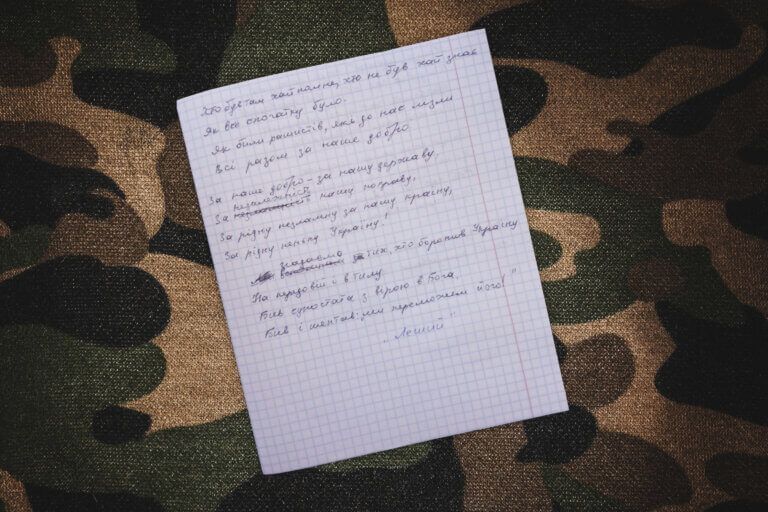 Хто був там хай помне, хто не був хай знає
Як все спочатку було.
Як били рашистів, які до нас лізли
Всі разом за наше добро.
За наше добро – за нашу державу,
незалежність
За нашу яскраву,
За рідну незламну за нашу країну,
За рідну неньку Україну!
згадаємо
тих, хто боронив Україну
На передовій і в тилу.
Бив супостата з вірою в Бога,
Бив і шептав: ми переможем його!"
"Леший"